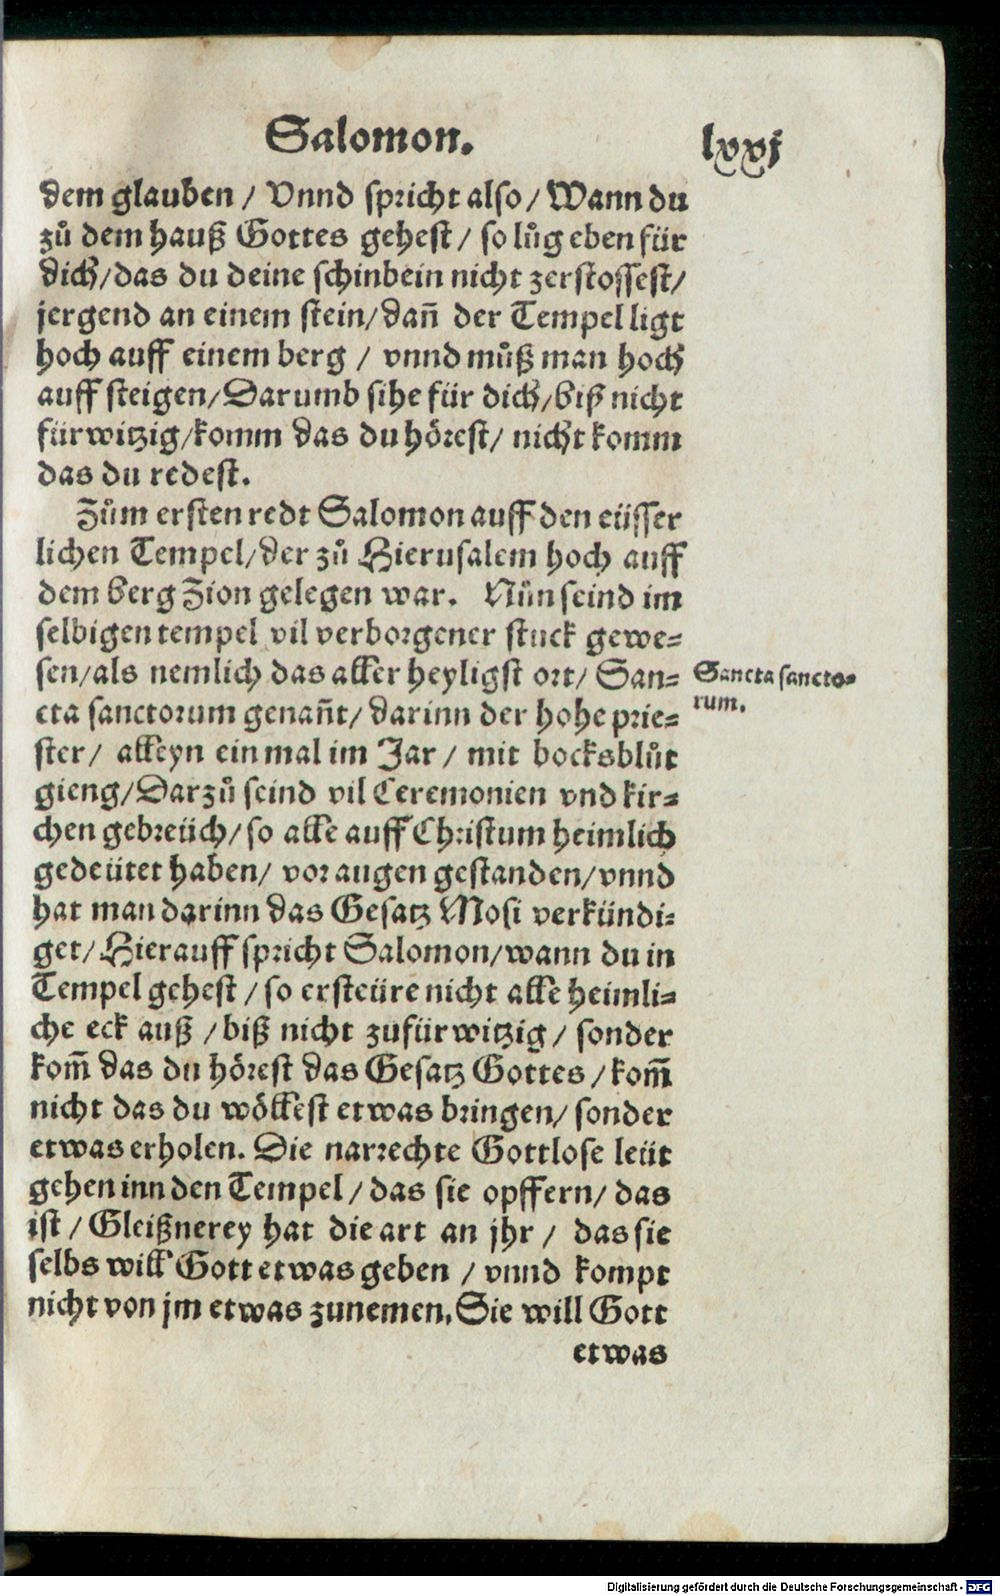 Salomon.
lxxj
dem glauben / Vnnd spricht also / Wann du
zů dem hauß Gottes gehest / so lůg eben für
dich / das du deine schinbein nicht zerstossest /
jergend an einem stein / dañ der Tempel ligt
hoch auff einem berg / vnnd můß man hoch
auff steigen / Darumb sihe für dich / biß nicht
fürwitzig / komm das du hörest / nicht komm
das du redest.
Zům ersten redt Salomon auff den eüsser
lichen Tempel / der zů Hierusalem hoch auff
dem berg Zion gelegen war. Nůn seind im
selbigen tempel vil verborgener stuck gewe-
sen / als nemlich das aller heyligst ort / San-
Sancta sancto-
rum.
cta sanctorum genañt / darinn der hohe prie-
ster / alleyn ein mal im Jar / mit bocksblůt
gieng / Darzů seind vil Ceremonien vnd kir-
chen gebreüch / so alle auff Christum heimlich
gedeütet haben / vor augen gestanden / vnnd
hat man darinn das Gesatz Mosi verkündi-
get / Hierauff spricht Salomon / wann du in
Tempel gehest / so ersteüre nicht alle heimli-
che eck auß / biß nicht zufürwitzig / sonder
kom̃ das du hörest das Gesatz Gottes / kom̃
nicht das du wöllest etwas bringen / sonder
etwas erholen. Die narrechte Gottlose leüt
gehen inn den Tempel / das sie opffern / das
ist / Gleißnerey hat die art an jhr / das sie
selbs will Gott etwas geben / vnnd kompt
nicht von jm etwas zunemen. Sie will Gott
etwas
Digitalisierung gefördert durch die Deutsche Forschungsgemeinschaft - DFG